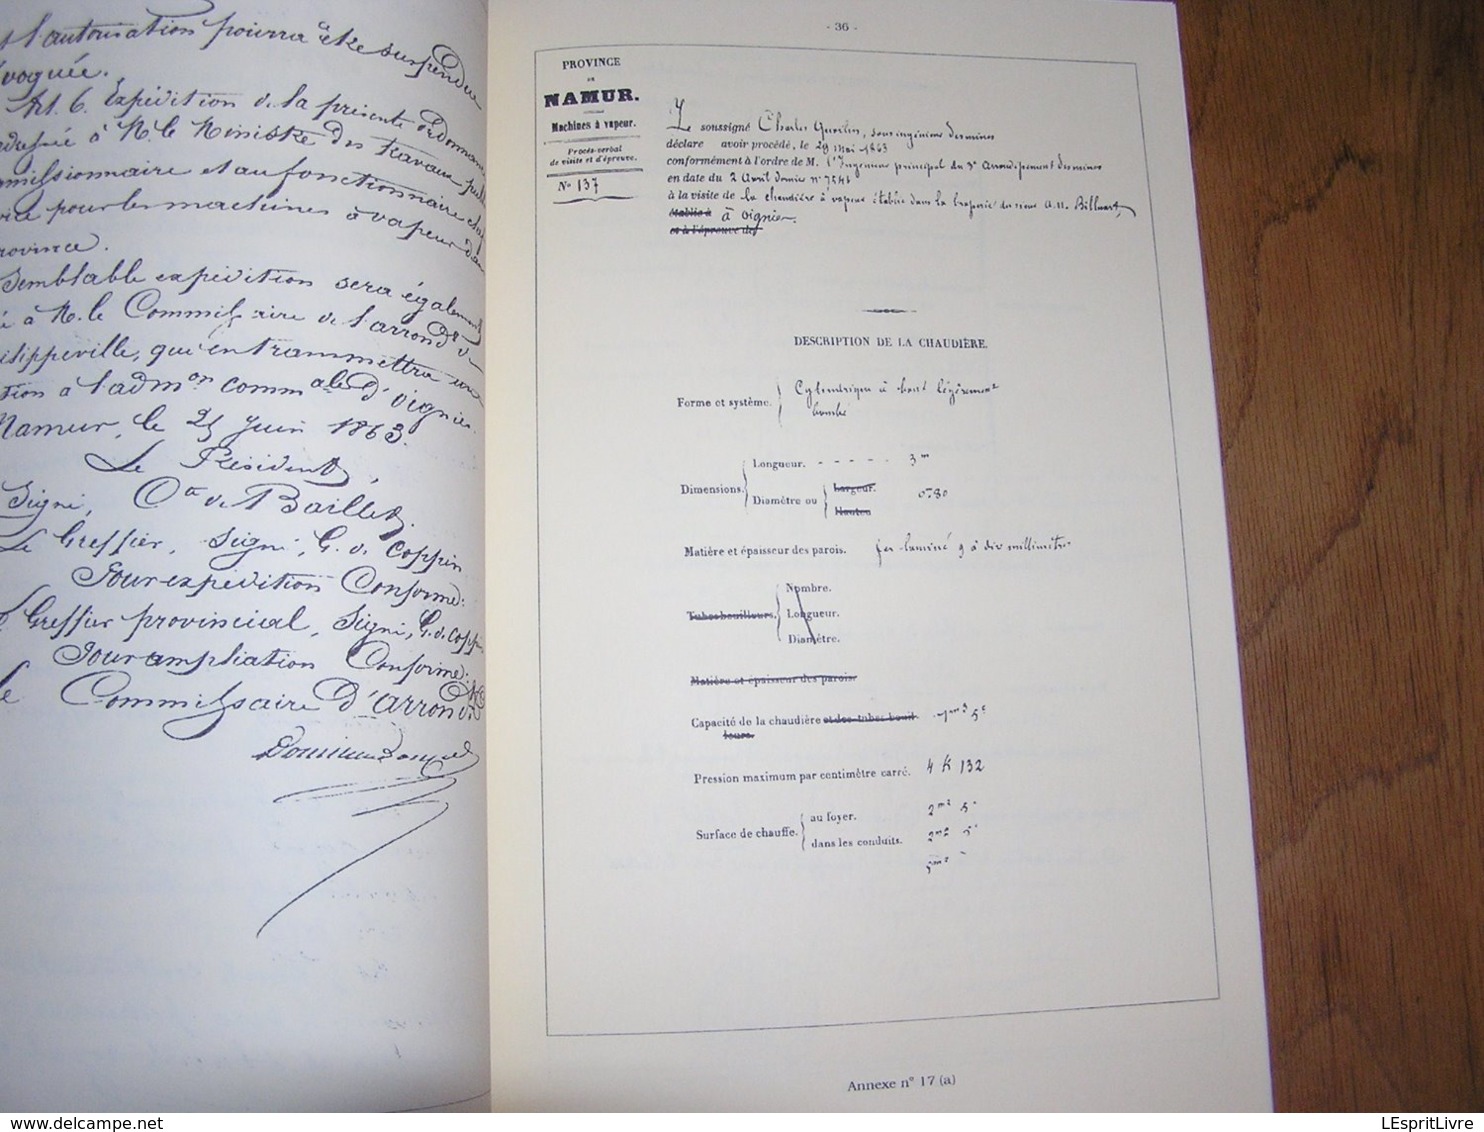 et l'autorisation pourra être suspendue
évoquée.
Art. 6. Expédition de la présente ordonnance
adressée à M. le Ministre des travaux publ
missionnaire et au fonctionnaire
pour les machines à vapeur dans
rovince.
Semblable expédition sera également
à M. le Commissaire de l'arrondt de
ilippeville, qui en transmettra une
tion à l'admon commale d'Oignies.
Namur, le 25 juin 1863.
Le Président,
Signé, Cte de Baillet.
Le Greffier, Signé, G. de Coppin
Pour expédition Conforme:
Greffier provincial, Signé, G. de Coppin
Pour ampliation Conforme:
Le Commissaire d'arrondt
- 36 -
PROVINCE
DE
NAMUR.
Machines à vapeur.
Procès-verbal
de visite et d'épreuve.
No 137
Le soussigné Charles, sous ingénieur des mines
déclare avoir procédé, le 29 mai 1863
conformément à l'ordre de M. l'Ingénieur principal du 3e arrondissement des mines
en date du 2 Avril dernier no 7541
à la visite de la chaudière à vapeur établie dans la du sieur A.H. Billuart,
établie à à Oignies.
et à l'épreuve de
DESCRIPTION DE LA CHAUDIÈRE.
Forme et système. Cylindrique à bout légèrement
bombé
Dimensions. Longueur. - - - - - 3 m
Diamètre ou Largeur. 0m80
Hauteur
Matière et épaisseur des parois. fer laminé 9 à dix millimètres
Tubes bouilleurs. Nombre.
Longueur.
Diamètre.
Matière et épaisseur des parois.
Capacité de la chaudière et des tubes bouil-
leurs.
Pression maximum par centimètre carré. 4 K 132
Surface de chauffe. au foyer. 2m2 5
dans les conduits. 2m2 5
5m2
Annexe n° 17 (a)
LEspritLivre